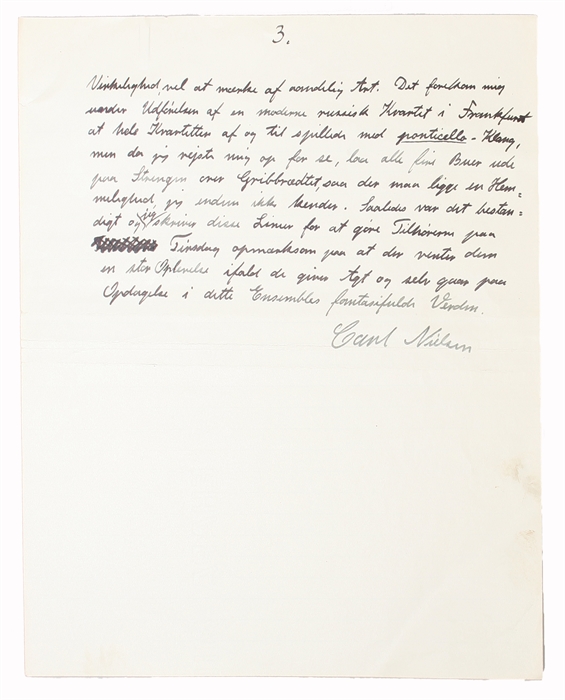 3.
Virkelighed, vel at mærke af aandelig Art. Det forekom mig
under Udførelsen af en moderne russisk Kvartet i Frankfurt
at hele Kvartetten af og til spillede med ponticello-Klang,
men da jeg rejste mig op for se, laa alle fire Buer ude
paa Strengen over Gribbrædtet, saa der maa ligge en Hem=
melighed, jeg endnu ikke kender. Saaledes var det bestan=
digt og jeg skriver disse Linier for at gøre Tilhørerne paa
Tirsdag opmærksom paa at der venter dem
en stor Oplevelse ifald de giver Agt og selv gaar paa
Opdagelse i dette Ensembles fantasifulde Verden.
Carl Nielsen